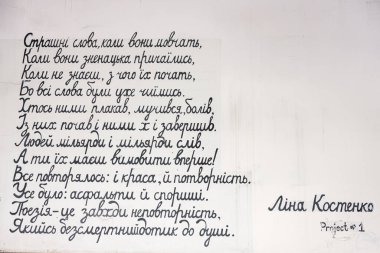 Страшні слова, коли вони мовчать,
Коли вони зненацька причаїлись,
Коли не знаєш, з чого їх почать,
Бо всі слова були уже чиїмись.
Хтось ними плакав, мучився, болів,
Із них почав і ними ж і завершив.
Людей мільярди і мільярди слів,
А ти їх маєш вимовити вперше!
Все повторялось: і краса, й потворність.
Усе було: асфальти й спориші.
Поезія-це завжди неповторність,
Якийсь безсмертний дотик до душі.
Ліна Костенко
Project № 1